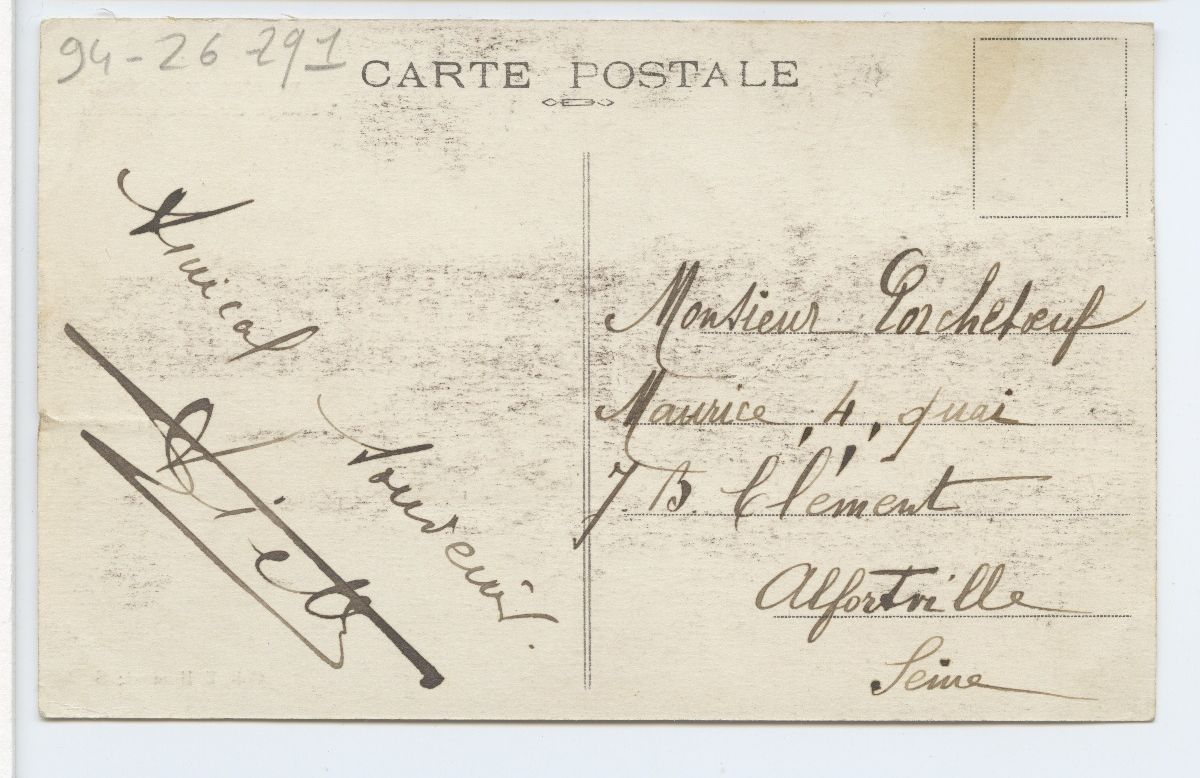 94-26 291
CARTE POSTALE
Amical
Souvenir.
Monsieur Porcheboeuf
Maurice 4, quai
J. B. Clément
Alfortville
Seine